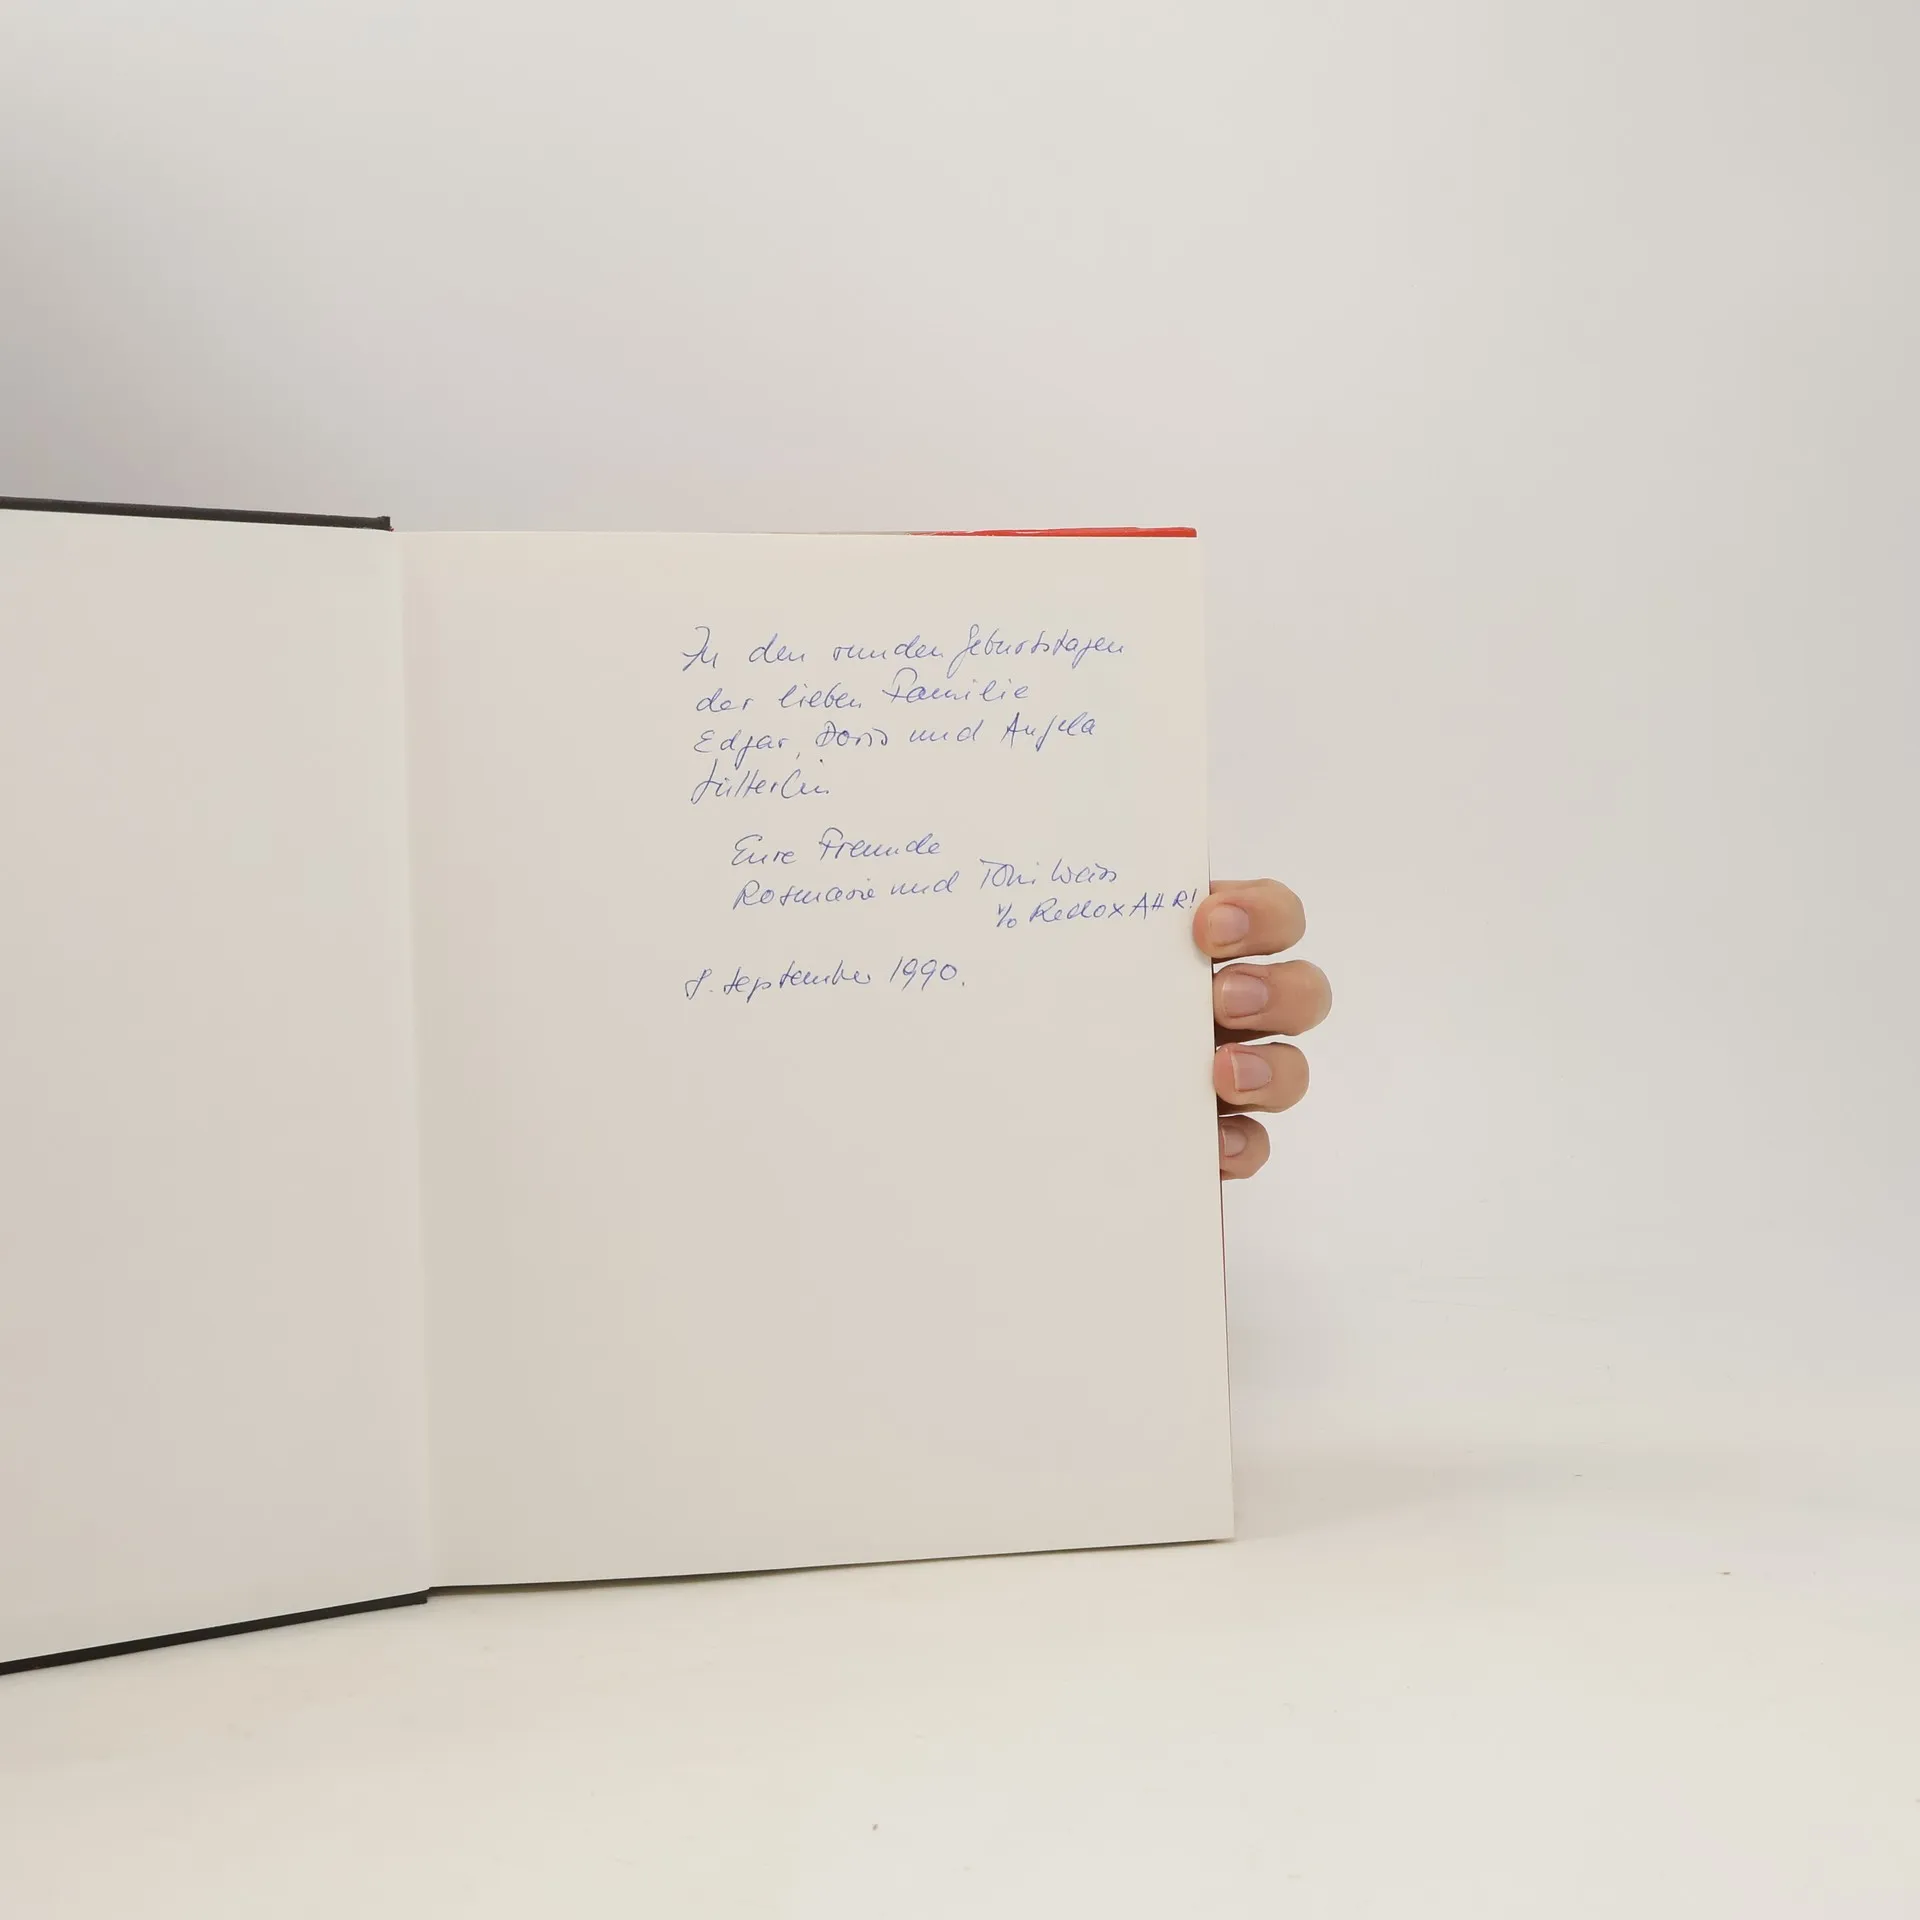 Zu den runden Geburtstagen
der lieben Familie
Edgar, Doris und Angela
Sütterlin
Eure Freunde
Rosmarie und Toni Weiss
% Redox AHR!
8. September 1990.